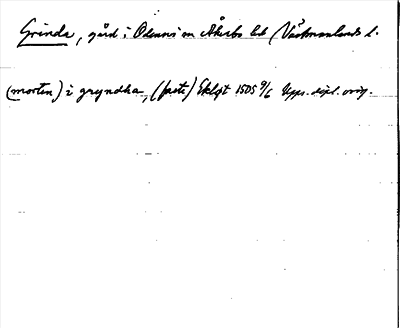 Grinda, gård i Odensvi sn Åkerbo hd (Västmanlands l.
(morten) i gryndha, (faste) Eklqt 1505 9/6 Upps. dipl. orig.